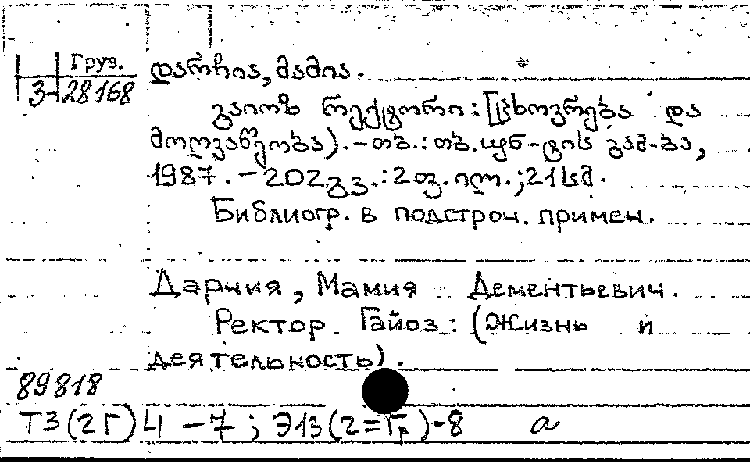 Груз.
3-28168
დარჩია, მამია.
გაიოზ რექტორი: [ცხოვრება და
მოღვაწეობა). - თბ.: თბ. უნ-ტის გამ-ბა,
1987. - 202 გვ.: 2 ფ. ილ.; 21 სმ.
Библиогр. в подстроч. примеч.
Дарчия, Мамия Дементьевич.
Ректор Гайоз: (Жизнь и
деятельность).
89818
Т3(2Г)4 - 7; Э13(2=Гр)-8 а